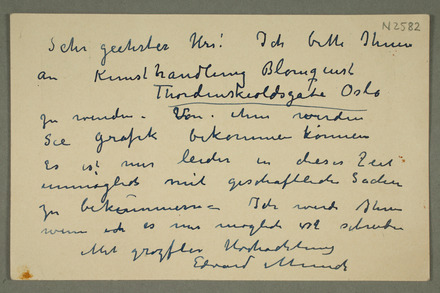 N 2582
Sehr geehrter Hrs! Ich bitte Ihnen
an Kunsthandlung Blomquist
Thordenskioldsgate Oslo
zu wenden. Von ihm werden
Sie grafik bekommen können
Es ist mir leider in dieser Zeit
unmöglich mit geschäftlichen Sachen
zu bekümmern – Ich werde Ihnen
wenn es mir möglich ist schreiben
Mit grösster Hochachtung
Edvard Munch